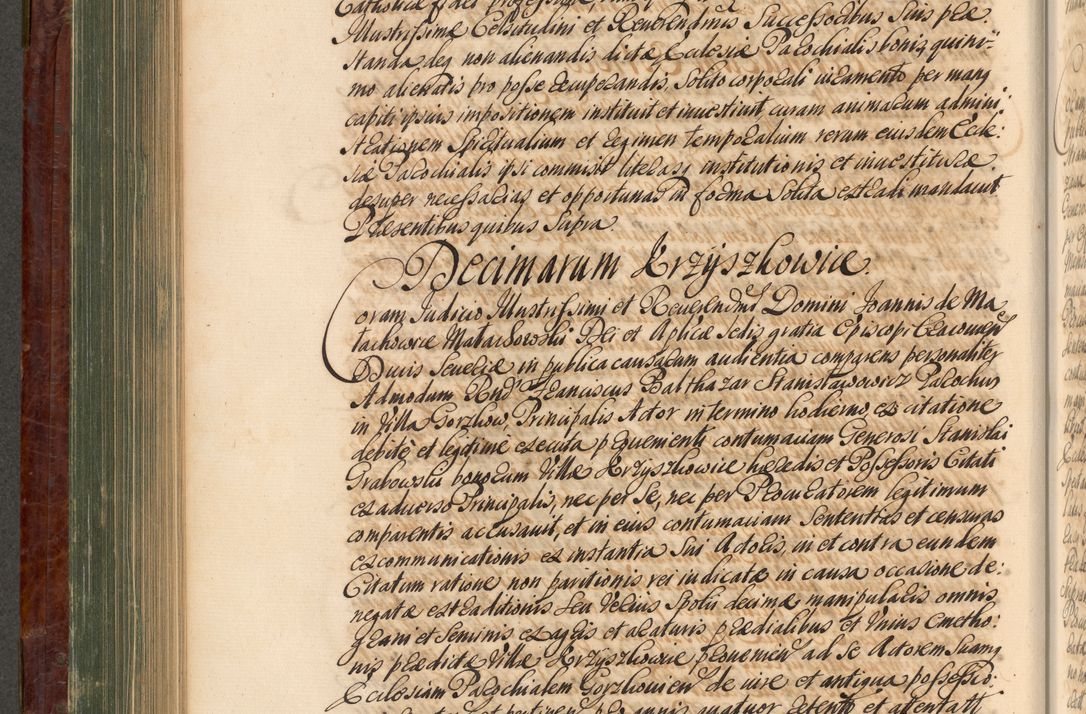 Illustrissimæ Celsitudini et Reverendmis Successoribus Suis præ-
standa, deq non alienandis dictæ Ecclesiæ Parochialis bonis, quini-
mo alienatis pro posse recuperandis, Solito corporali iuramento per manq
capiti ipsius impositionem instituit et investivit, curam animarum admini-
strationem Spiritualium et regimen temporalium rerum eiusdem Eccle:
siæ Parochialis ipsi commisit literasq institutionis et investituræ
desuper necessarias et opportunas in forma Solita extradi mandavit
Præsentibus quibus Supra.
Decimarum Krzyszkowice.
Coram Judicio Illustrissimi et Reverendmi Domini Joannis de Ma
łachowice Małachowski Dei et Aplicæ Sedis gratia Episcopi Cracovien
Ducis Severiæ in publica causarum audientia comparens personaliter
Admodum Rnd Franciscus Balthazar Stanisławowicz Parochus
in Villa Gorzkow, Principalis Actor in termino hodierno, ex citatione
debitè et legitimè executa pr̄veniente contumaciam Generosi Stanislai
Grabowski bonorum Villæ Krzyszkowice hæredis et Possessoris Citati
ex adverso Principalis, nec per Se, nec per Procuratorem legitimum
comparentis accusavit, et in eius contumaciam Sententias et censuras
excommunicationis ex instantia Sui Actoris, in et contra eundem
Citatum ratione non paritionis rei iudicatæ in causa occasione de:
negatæ extraditionis Seu Verius Spolii decimæ manipularis omnis
grani et Seminis ex agris et araturis prædialibus et Unius Cmetho:
nis prædictæ Villæ Krzyszkowice provenien ad Se Actorem Suamq
Ecclesiam Parochialem Gorzkovien de iure et antiqua possessio: